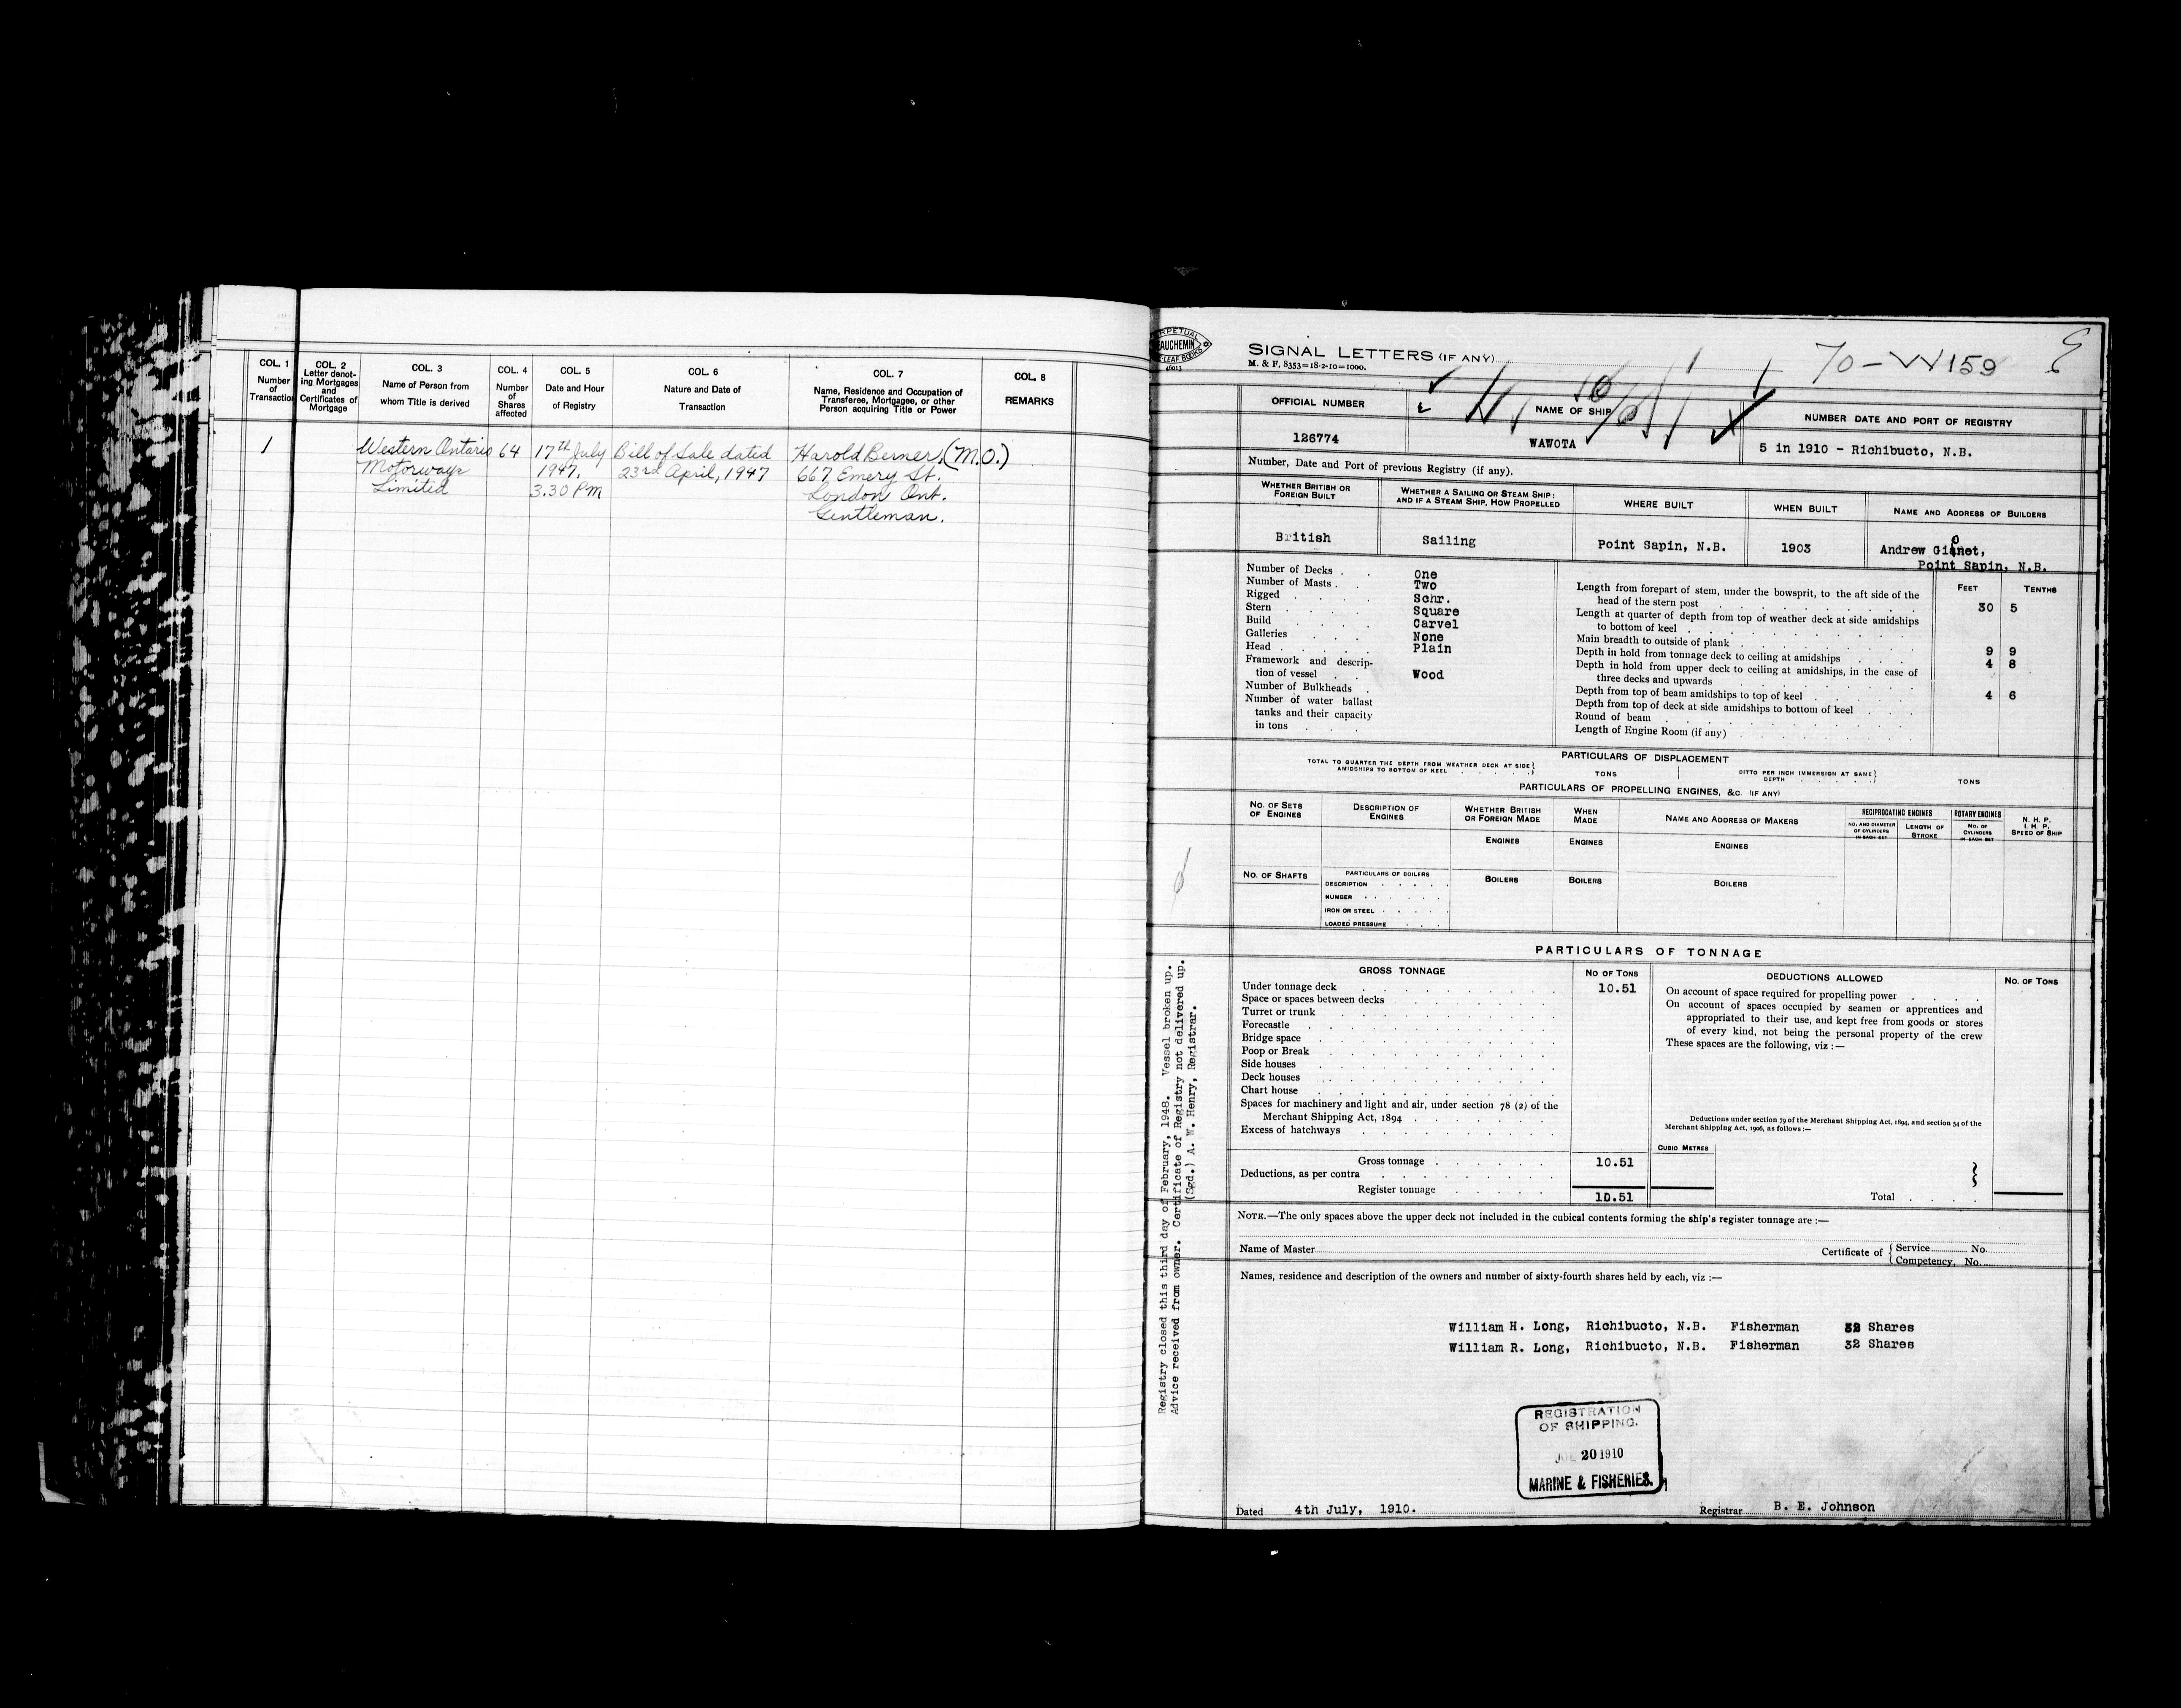 COL. 1
Number
of
Transaction
COL. 2
Letter denot-
ing Mortgages
and
Certificates of
Mortgage
COL. 3
Name of Person from
whom Title is derived
COL. 4
Number
of
Shares
affected
COL. 5
Date and Hour
of Registry
COL. 6
Nature and Date of
Transaction
COL. 7
Name, Residence and Occupation of
Transferee, Mortgagee, or other
Person acquiring Title or Power
COL. 8
REMARKS
1 Western Ontario 64 17th July Bill of Sale dated Harold Berner, (M.O.)
Motorways 1947, 23rd April, 1947 667, Emery St.
Limited 3.30 PM London Ont.
Gentleman.
PERPETUAL
BEAUCHEMIN
LEAF BOOKS
SIGNAL LETTERS (IF ANY)
M. & F. 8353=18-2-10=1000.
70-W159
OFFICIAL NUMBER
126774
NAME OF SHIP
WAWOTA
NUMBER DATE AND PORT OF REGISTRY
5 in 1910 - Richibucto, N.B.
Number, Date and Port of previous Registry (if any).
WHETHER BRITISH OR
FOREIGN BUILT
British
WHETHER A SAILING OR STEAM SHIP:
AND IF A STEAM SHIP, HOW PROPELLED
Sailing
WHERE BUILT
Point Sapin, N.B.
WHEN BUILT
1903
NAME AND ADDRESS OF BUILDERS
Andrew
Point Sapin, N.B.
Number of Decks . . One
Number of Masts . . Two
Rigged . . . . Schr.
Stern . . . . Square
Build . . . . Carvel
Galleries . . . None
Head . . . . . Plain
Framework and descrip-
tion of vessel . . Wood
Number of Bulkheads .
Number of water ballast
tanks and their capacity
in tons . . .
FEET TENTHS
Length from forepart of stem, under the bowsprit, to the aft side of the
head of the stern post 30 5
Length at quarter of depth from top of weather deck at side amidships
to bottom of keel
Main breadth to outside of plank 9 9
Depth in hold from tonnage deck to ceiling at amidships 4 8
Depth in hold from upper deck to ceiling at amidships, in the case of
three decks and upwards
Depth from top of beam amidships to top of keel 4 6
Depth from top of deck at side amidships to bottom of keel
Round of beam
Length of Engine Room (if any)
PARTICULARS OF DISPLACEMENT
TOTAL TO QUARTER THE DEPTH FROM WEATHER DECK AT SIDE
AMIDSHIPS TO BOTTOM OF KEEL
TONS
DITTO PER INCH IMMERSION AT SAME
DEPTH
TONS
PARTICULARS OF PROPELLING ENGINES, &C. (IF ANY)
NO. OF SETS
OF ENGINES
DESCRIPTION OF
ENGINES
WHETHER BRITISH
OR FOREIGN MADE
WHEN
MADE
NAME AND ADDRESS OF MAKERS
RECIPROCATING ENGINES
NO. AND DIAMETER
OF CYLINDERS
IN EACH SET
LENGTH OF
STROKE
ROTARY ENGINES
NO. OF
CYLINDERS
IN EACH SET
N. H. P.
I. H. P.
SPEED OF SHIP
ENGINES ENGINES ENGINES
NO. OF SHAFTS
PARTICULARS OF BOILERS
DESCRIPTION
NUMBER
IRON OR STEEL
LOADED PRESSURE
BOILERS BOILERS BOILERS
PARTICULARS OF TONNAGE
GROSS TONNAGE NO OF TONS
Under tonnage deck 10.51
Space or spaces between decks
Turret or trunk
Forecastle
Bridge space
Poop or Break
Side houses
Deck houses
Chart house
Spaces for machinery and light and air, under section 78 (2) of the
Merchant Shipping Act, 1894
Excess of hatchways
Gross tonnage 10.51
Deductions, as per contra
Register tonnage 10.51
DEDUCTIONS ALLOWED NO. OF TONS
On account of space required for propelling power
On account of spaces occupied by seamen or apprentices and
appropriated to their use, and kept free from goods or stores
of every kind, not being the personal property of the crew
These spaces are the following, viz :—
Deductions under section 79 of the Merchant Shipping Act, 1894, and section 54 of the
Merchant Shipping Act, 1906, as follows :—
CUBIC METRES
Total
NOTE.—The only spaces above the upper deck not included in the cubical contents forming the ship's register tonnage are :—
Name of Master
Certificate of { Service No.
{ Competency, No.
Names, residence and description of the owners and number of sixty-fourth shares held by each, viz :—
William H. Long, Richibucto, N.B. Fisherman 32 Shares
William R. Long, Richibucto, N.B. Fisherman 32 Shares
REGISTRATION
OF SHIPPING.
JUL 20 1910
MARINE & FISHERIES.
Dated 4th July, 1910.
Registrar B. E. Johnson
Registry closed this third day of February, 1948. Vessel broken up.
Advice received from owner. Certificate of Registry not delivered up.
(Sgd.) A. W. Henry, Registrar.